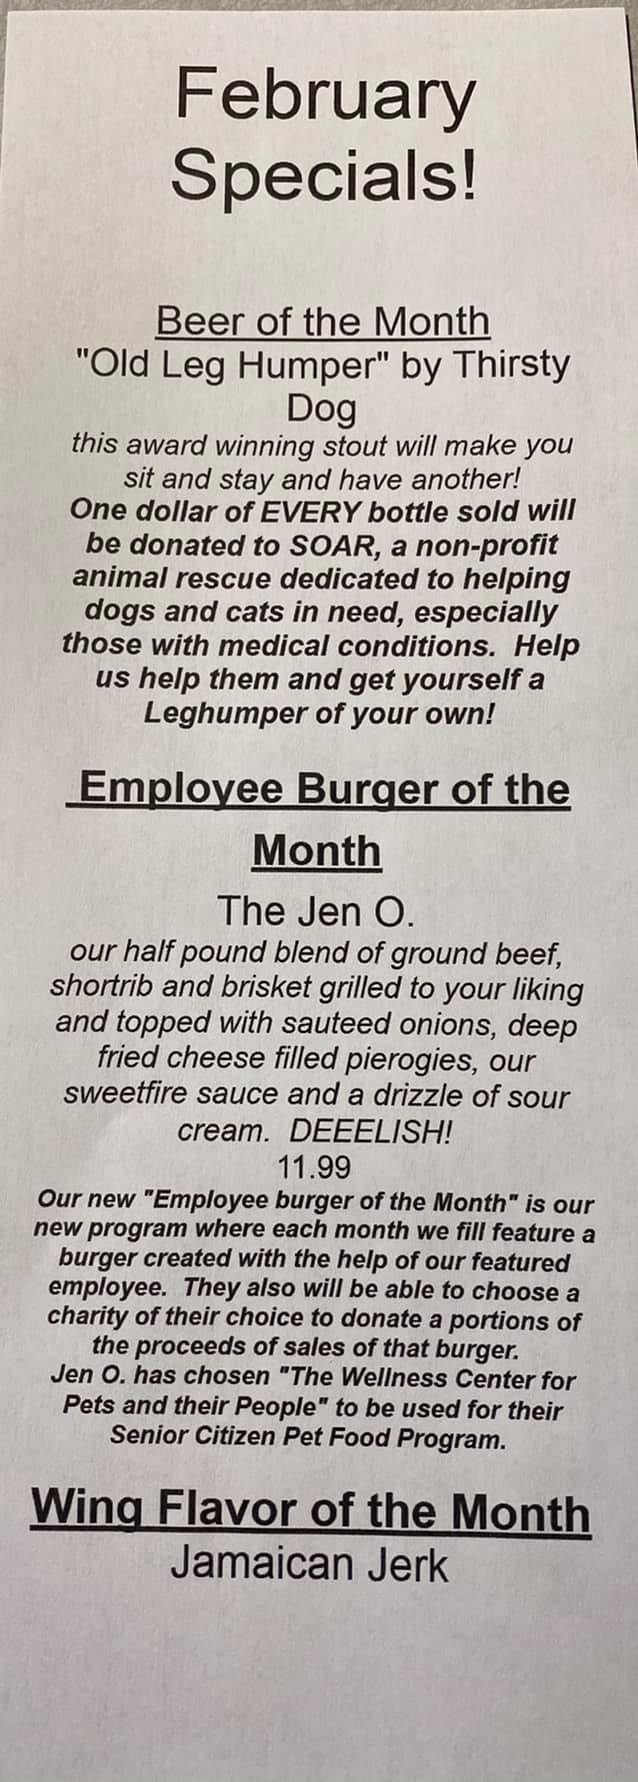 February
Specials!
Beer of the Month
"Old Leg Humper" by Thirsty
Dog
this award winning stout will make you
sit and stay and have another!
One dollar of EVERY bottle sold will
be donated to SOAR, a non-profit
animal rescue dedicated to helping
dogs and cats in need, especially
those with medical conditions.  Help
us help them and get yourself a
Leghumper of your own!
Employee Burger of the
Month
The Jen O.
our half pound blend of ground beef,
shortrib and brisket grilled to your liking
and topped with sauteed onions, deep
fried cheese filled pierogies, our
sweetfire sauce and a drizzle of sour
cream.  DEEELISH!
11.99
Our new "Employee burger of the Month" is our
new program where each month we fill feature a
burger created with the help of our featured
employee.  They also will be able to choose a
charity of their choice to donate a portions of
the proceeds of sales of that burger.
Jen O. has chosen "The Wellness Center for
Pets and their People" to be used for their
Senior Citizen Pet Food Program.
Wing Flavor of the Month
Jamaican Jerk